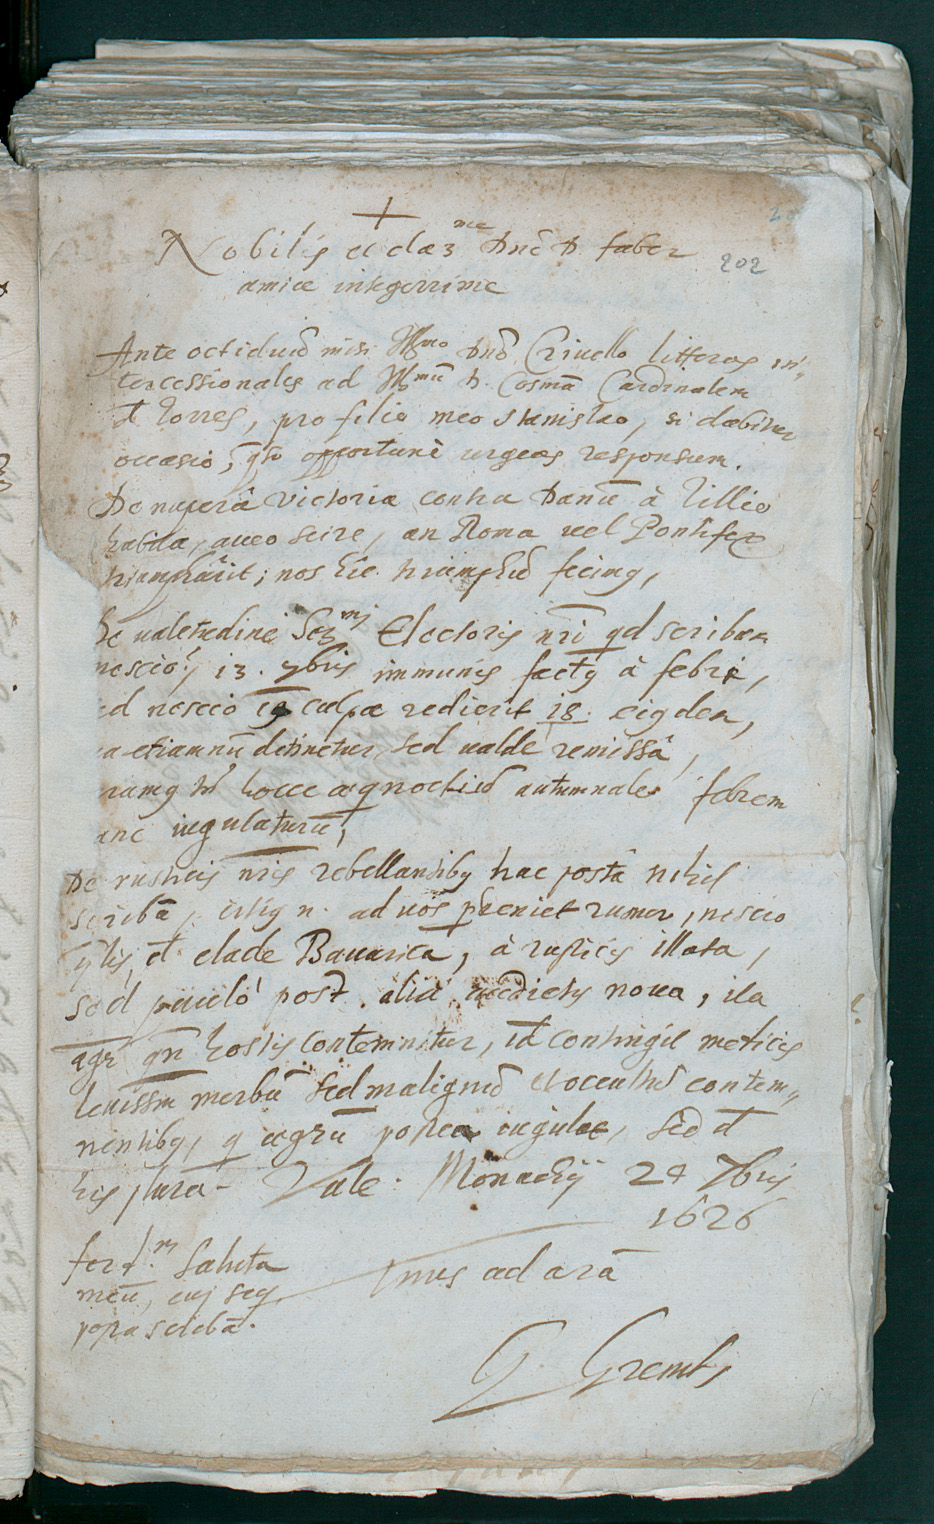 +
Nobilis et claz me Dne D. faber
202
amice integerrime
Ante octiduũ misi Illmo Dnõ Crivello litteras in,,
tercessionales ad Illmũ D. Cosmã Cardinalem
d Torres, pro filio meo Stanislao, si dabitur
occasio, opportunè urgeas responsum.
De nuperâ victoria contra Danũ à Tillio
habita, aueo scire, an Roma uel Pontifex
triumphârit; nos hic triumphũ fecimg,
De ualetudine Sermi Electoris nri qd scribam
nescio; 13. 7bris immunis factg à febri,
sed nescio culpa redierit 18. eigdem,
ea etiamnũ detinetur, sed ualde remissâ,
hocce aeqnoctiũ autumnale febrem
anc iugulaturũ,
De rusticis nris rebellantibg hac postâ nihil
scribã, n. ad uos pueniet rumor, nescio
qlis, d clade Bauarica, à rusticis illata,
sed paulò post alia accdietis noua, ita
agr qn hostis contemnitur, id contingit meticis
leuissim morbũ sed malignũ et occultũ contem,,
nentibg, q aegrũ postea iugulat, sed d
his plura. Vale. Monachij 24 7bris
1626
fer d. m saluta
tuus ad arã
meũ, cuj seq.
popa solebã.
G Grembs